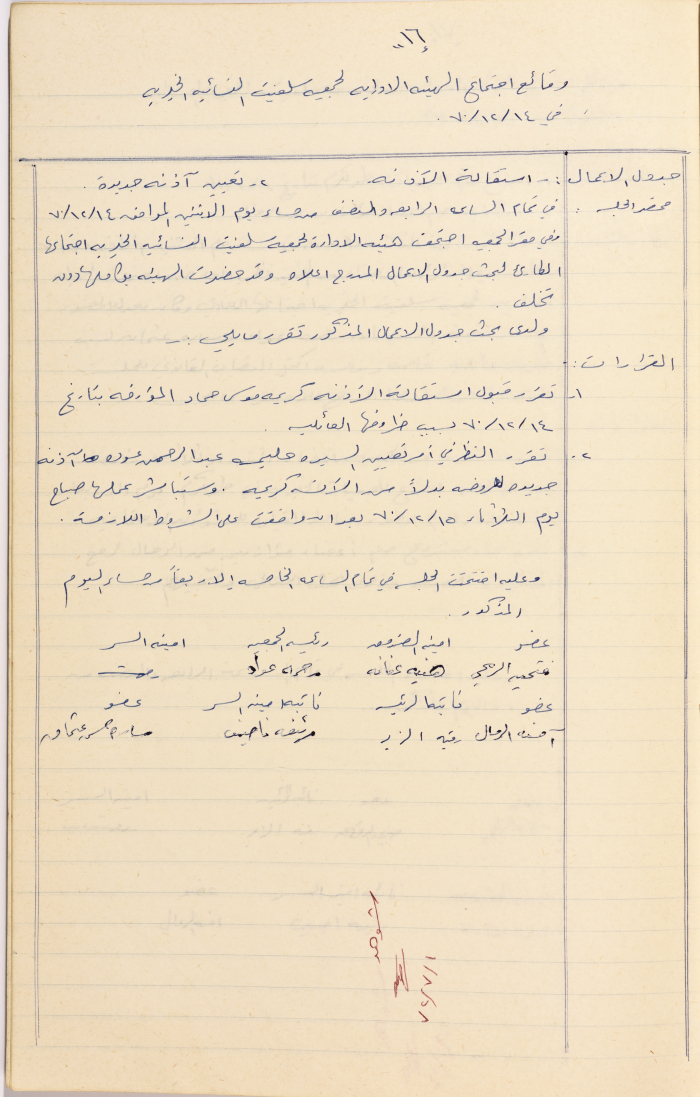 ١٦
وقائع اجتماع الهيئه الاداريه لجمعيه سلفيت النسائيه الخيريه
في ٧٠/١٢/١٤ .
جدول الاعمال : ١- استقالة الآذنه ٢- تعيين آذنه جديدة .
محضر الجلسه : في تمام الساعه الرابعه والنصف من مساء يوم الاثنين الموافق ٧٠/١٢/١٤
وفي مقر الجمعيه اجتمعت هيئه الادارة لجمعيه سلفيت النسائيه الخيريه اجتماعها
الطارئ لبحث جدول الاعمال المدرج اعلاه وقد حضرت الهيئه بكاملها دون
تخلف .
ولدى بحث جدول الاعمال المذكور تقرر مايلي :-
القرارات :-
١- تقرر قبول استقالة الآذنه كريمه موسى حماد المؤرخه بتاريخ
٧٠/١٢/١٤ بسبب ظروفها العائليه
٢- تقرر النظر في أمر تعيين السيده حليمه عبد الرحمن آذنه
جديده للروضه بدلاً من الآذنه كريمه . وستباشر عملها صباح
يوم الثلاثاء ٧٠/١٢/١٥ بعد ان وافقت على الشروط اللازمة .
وعليه اختتمت الجلسه في تمام الساعه الخامسه إلا ربعاً من مساء اليوم
المذكور .
عضو امينه الصندوق رئيسه الجمعيه امينه السر
فتحيه
عضو نائبه الرئيسه نائبه امينه السر عضو
آمنه رقيه الزير
شوهد
٧٢/٧/١